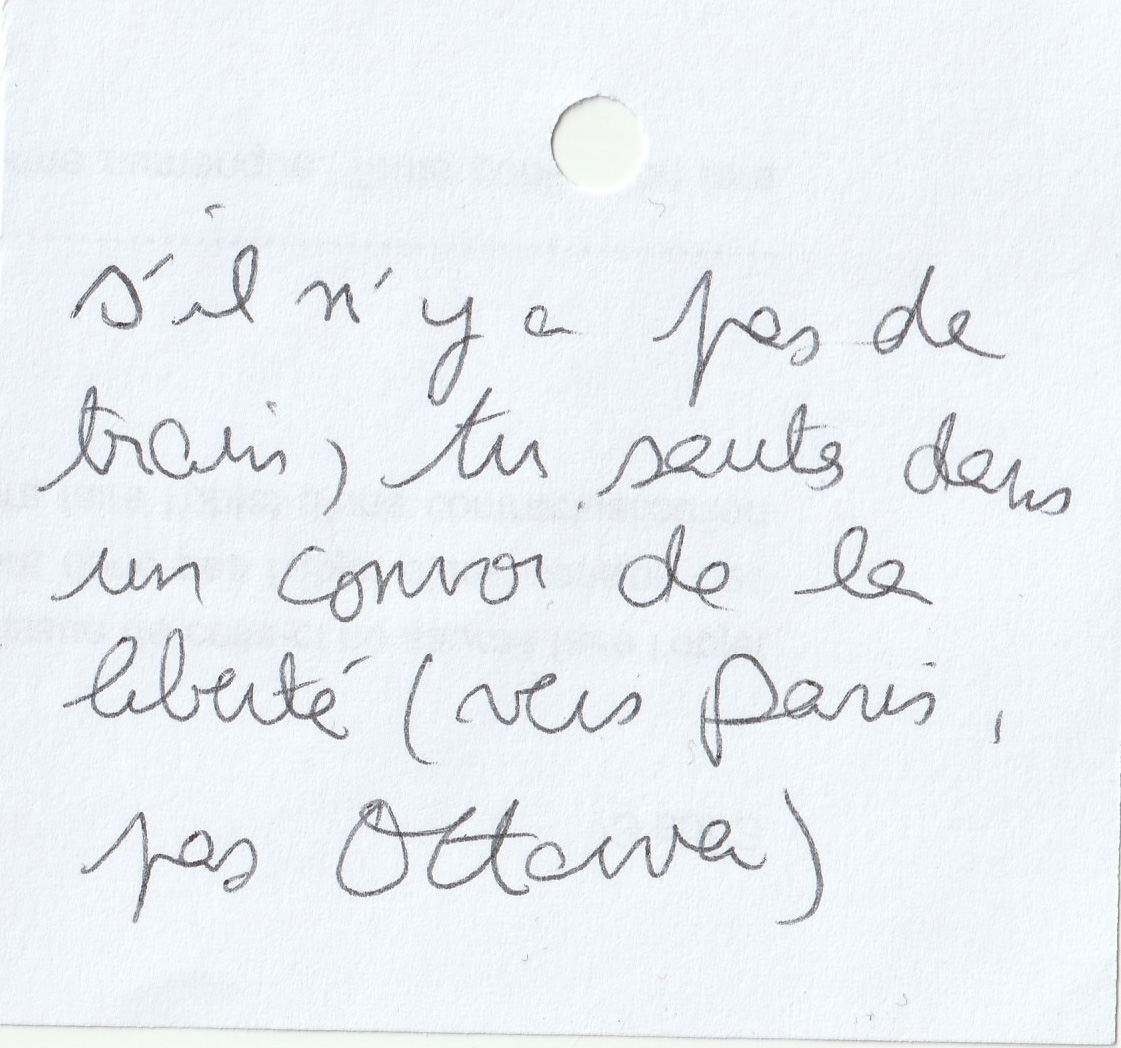 s'il n'y a pas de
train, tu sautes dans
un convoi de la
liberté (vers Paris,
pas Ottawa)